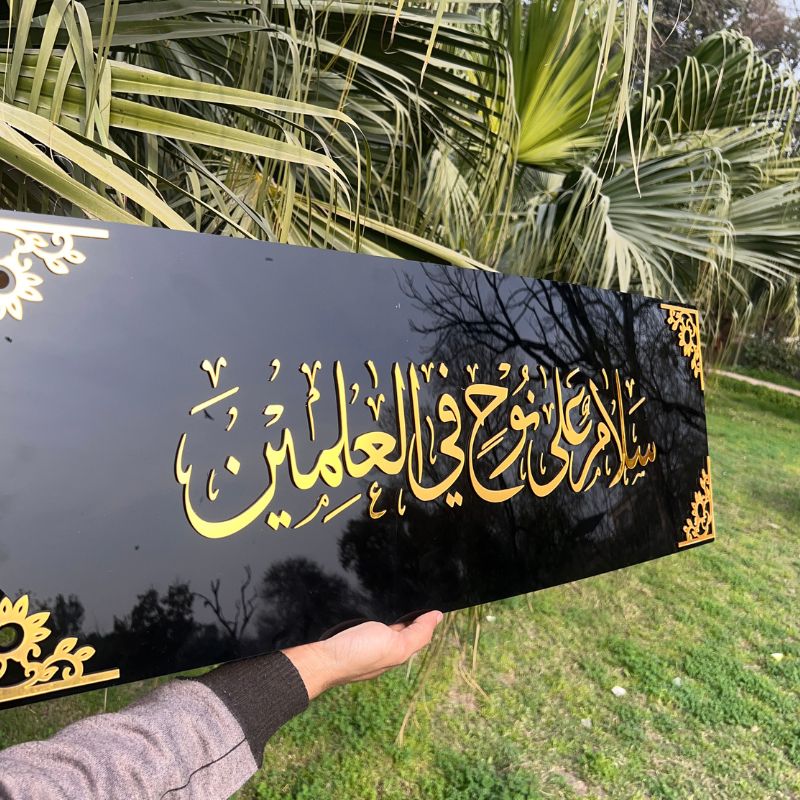 سَلَامٌ عَلَى نُوحٍ فِي الْعٰلَمِينَ